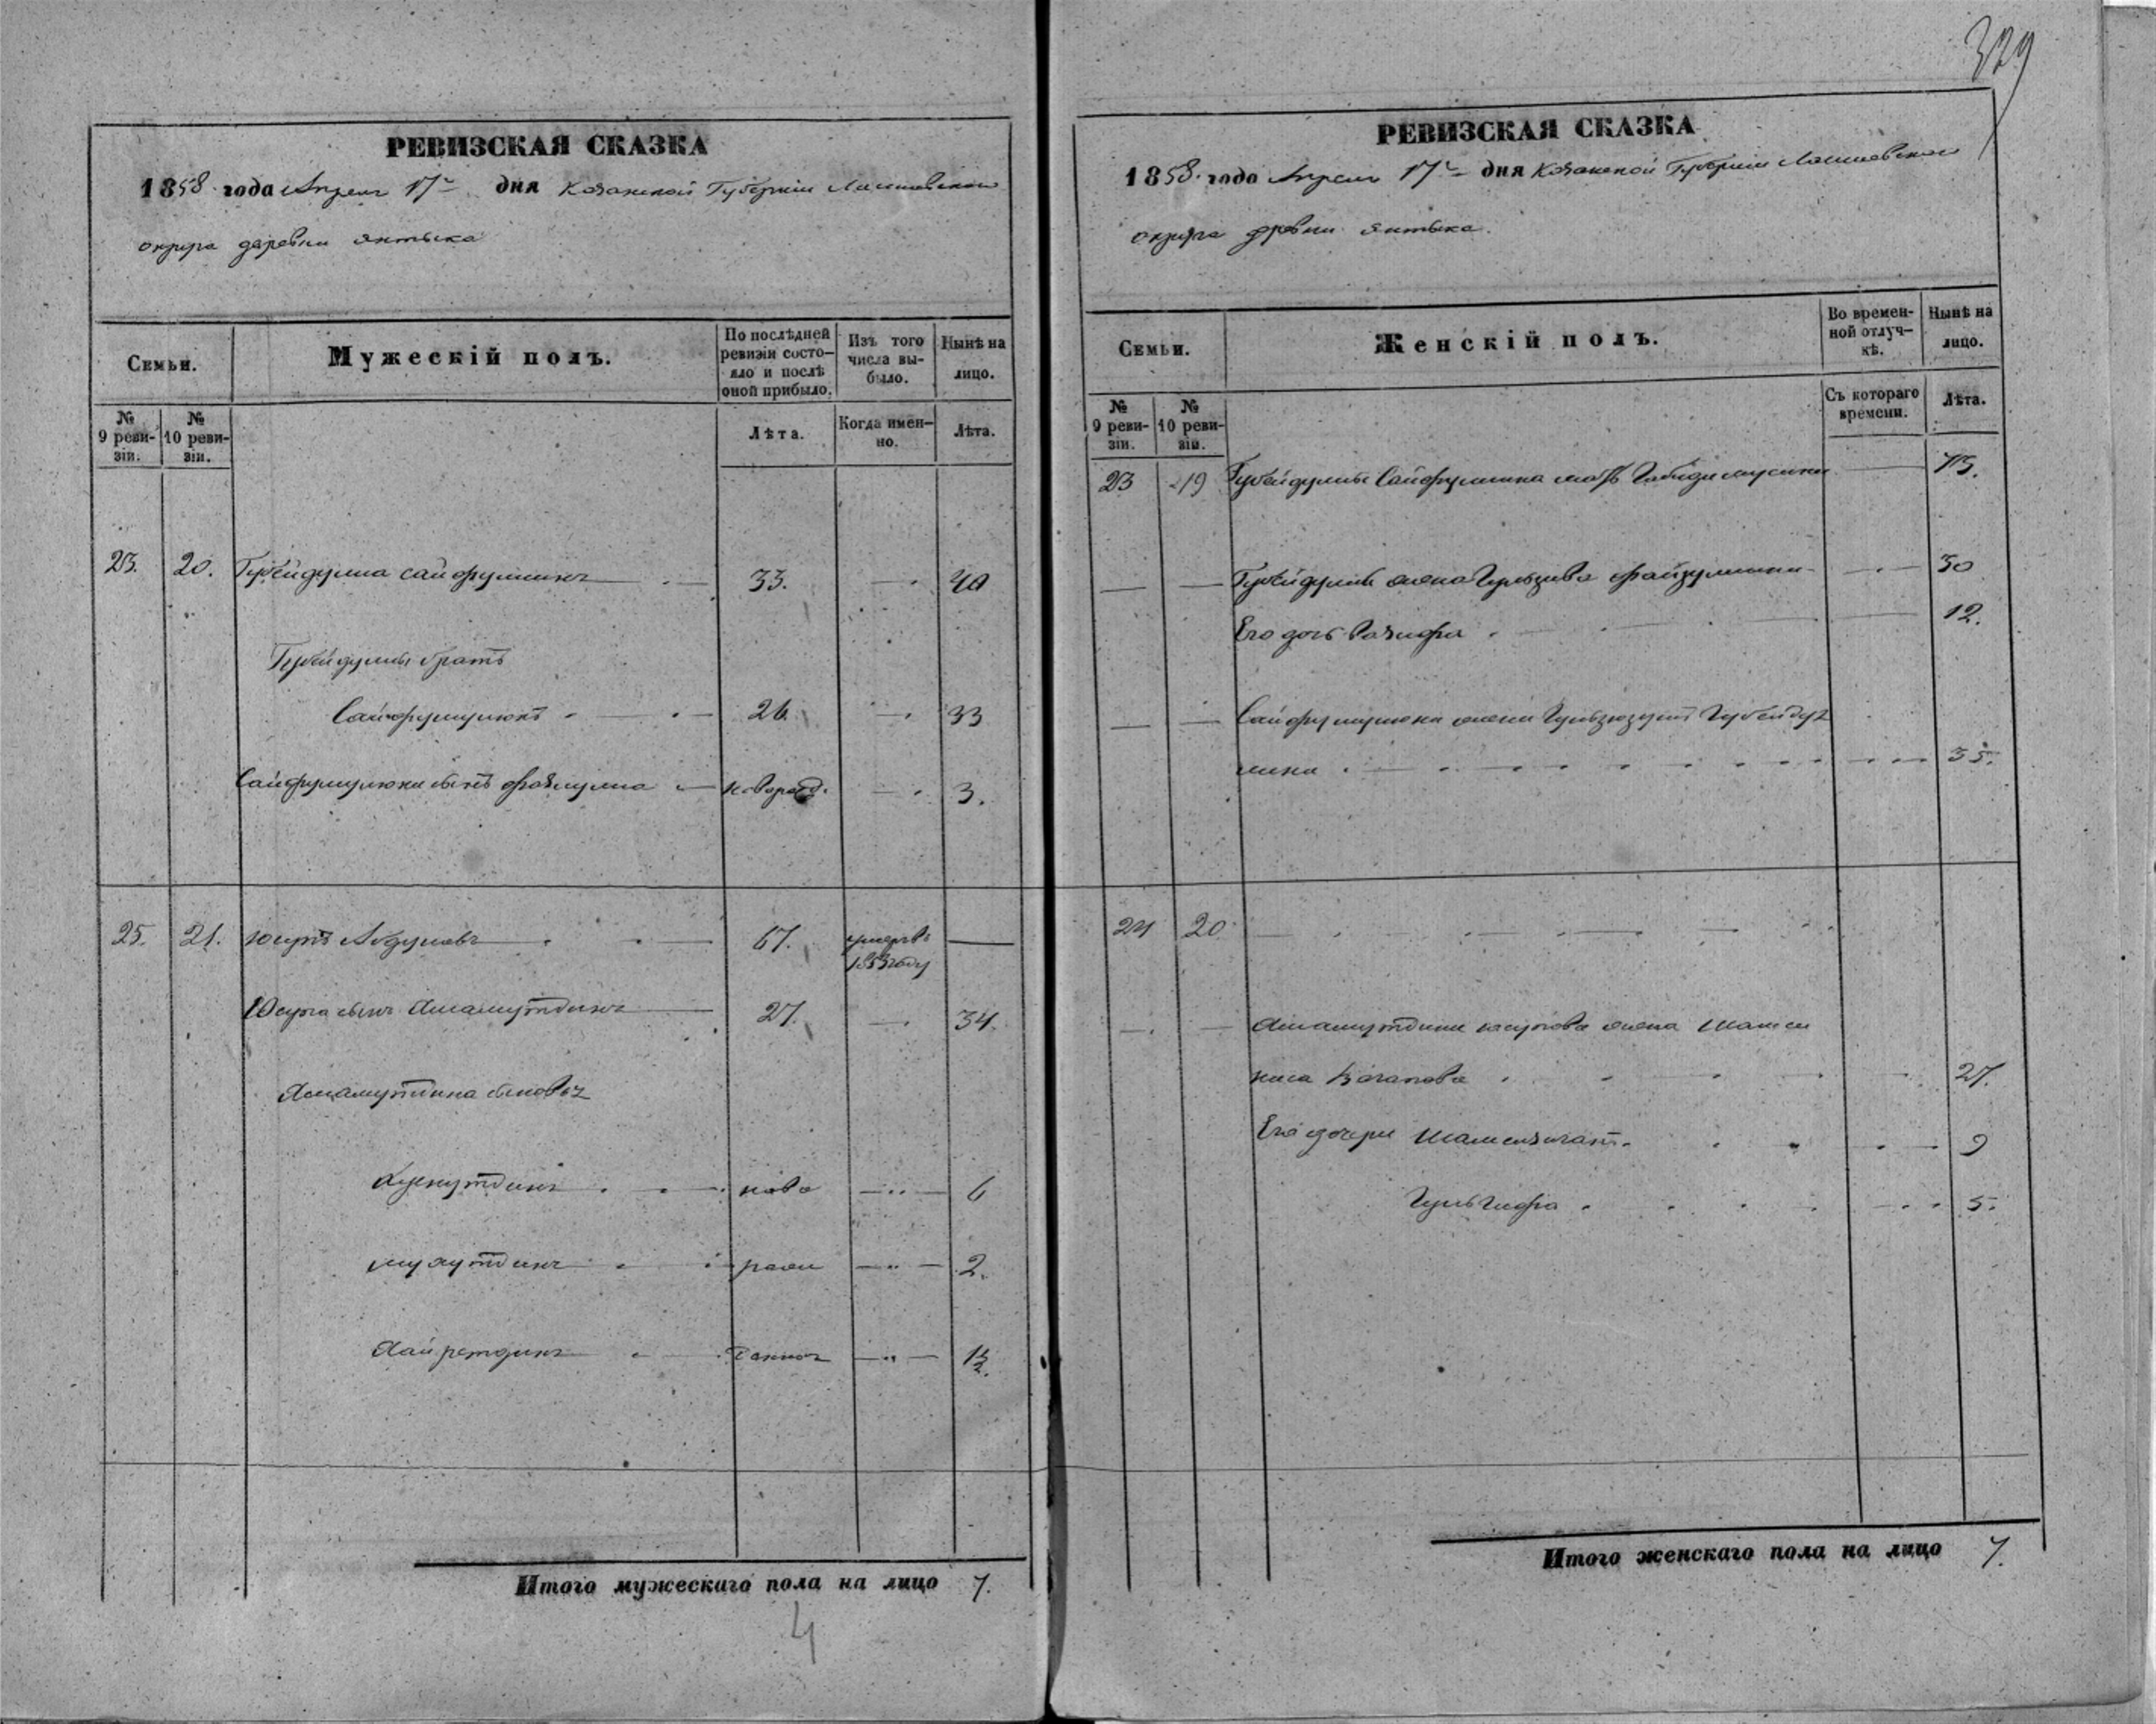 329
РЕВИЗСКАЯ СКАЗКА
1858 года Апреля 17 дня Казанской Губернiи Лаишевскаго
округа деревни Янтыка
Семьи.
Мужескiй полъ.
По послѣдней ревизiи состо-
яло и послѣ оной прибыло.
Изъ того числа вы-
было.
Нынѣ на лицо.
№ 9 реви-
зiи.
№ 10 реви-
зiи.
Лѣта.
Когда имен-
но.
Лѣта.
23. 20. Губейдулла Сайфуллинъ 33. 40
Губейдуллы братъ
Сайфулмулюкъ 26. 33
Сайфулмулюка сынъ Фазлулла новорожд. 3.
25. 21. Юсупъ Абдуловъ 67. умеръ въ
1853 году
Юсупа сынъ Ямамутдинъ 27. 34.
Ямамутдина сыновья
ново 6
рож 2.
Хайретдинъ денног 1½.
Итого мужескаго пола на лицо 7.
4
РЕВИЗСКАЯ СКАЗКА
1858 года Апреля 17 дня Казанской Губернiи Лаишевскаго
округа деревни Янтыка.
Семьи.
Женскiй полъ.
Во времен-
ной отлуч-
кѣ.
Нынѣ на лицо.
№ 9 реви-
зiи.
№ 10 реви-
зiи.
Съ котораго времени.
Лѣта.
23 19 Губейдуллы Сайфуллина мать 73.
Губейдуллы жена Файзуллина 30
Его дочь Разифа 12.
Сайфулмулюка жена Губейдул
лина 35.
24 20
Ямамутдина Юсупова жена Шамси
ниса Вагапова 27.
Его дочери 9
Гульгифа 5.
Итого женскаго пола на лицо 7.